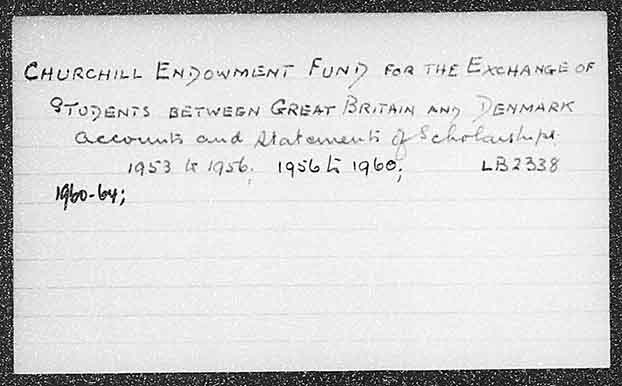 CHURCHILL ENDOWMENT FUND FOR THE EXCHANGE OF
STUDENTS BETWEEN GREAT BRITAIN AND DENMARK
Accounts and Statements of Scholarships.
1953 to 1956; 1956 to 1960; LB2338
1960-64;